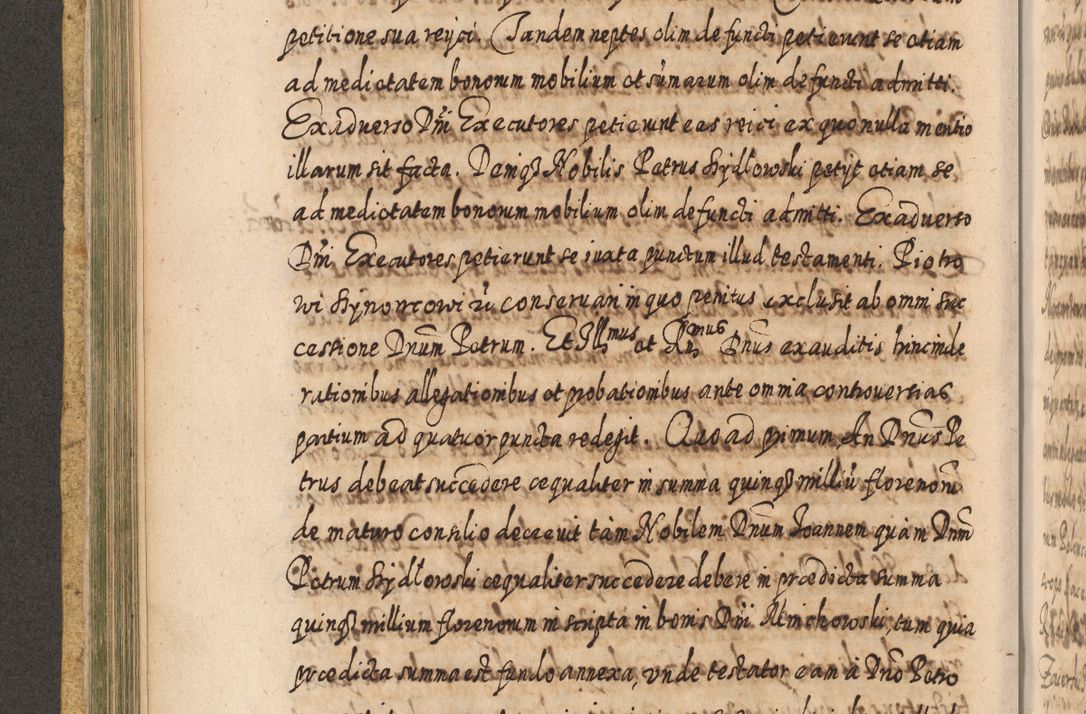 petitione sua reyci. Tandem neptes olim defuncti petierunt se etiam
ad medietatem bonorum mobilium et sum̃arum olim defuncti admitti.
Ex adverso Dñi Executores petierunt eas reici ex quo nulla mentio
illarum sit facta. Demq3 Nobilis Petrus Szydłowski petyt etiam se
ad medietatem bonorum mobilium olim defuncti admitti. Ex adverso
Dñi Executores petierunt se iuxta punctum illud testamenti. Piotro
wi conservari in quo penitus exclusit ab omni suc
cessione Dnũm Petrum. Et Illmus et Rñmus Dnũs exauditis hincinde
rationibus allegationibus et probationibus ante omnia controversias
partium ad quatuor puncta redegit. Quo ad primum An Dnũs Pe
trus debeat succedere æqualiter in summa quinq3 milliũ florenorũ
de maturo consilio decrevit tàm Nobilem Dnũm Joannem quàm Dnũm
Petrum Szydłowski æqualiter succedere debere in prædicta summa
quinq3 millium florenorum inscripta in bonis Dñi Minchowski, tum quia
prædicta summa est fundo annexa, unde testator eam à Dnõ Petro